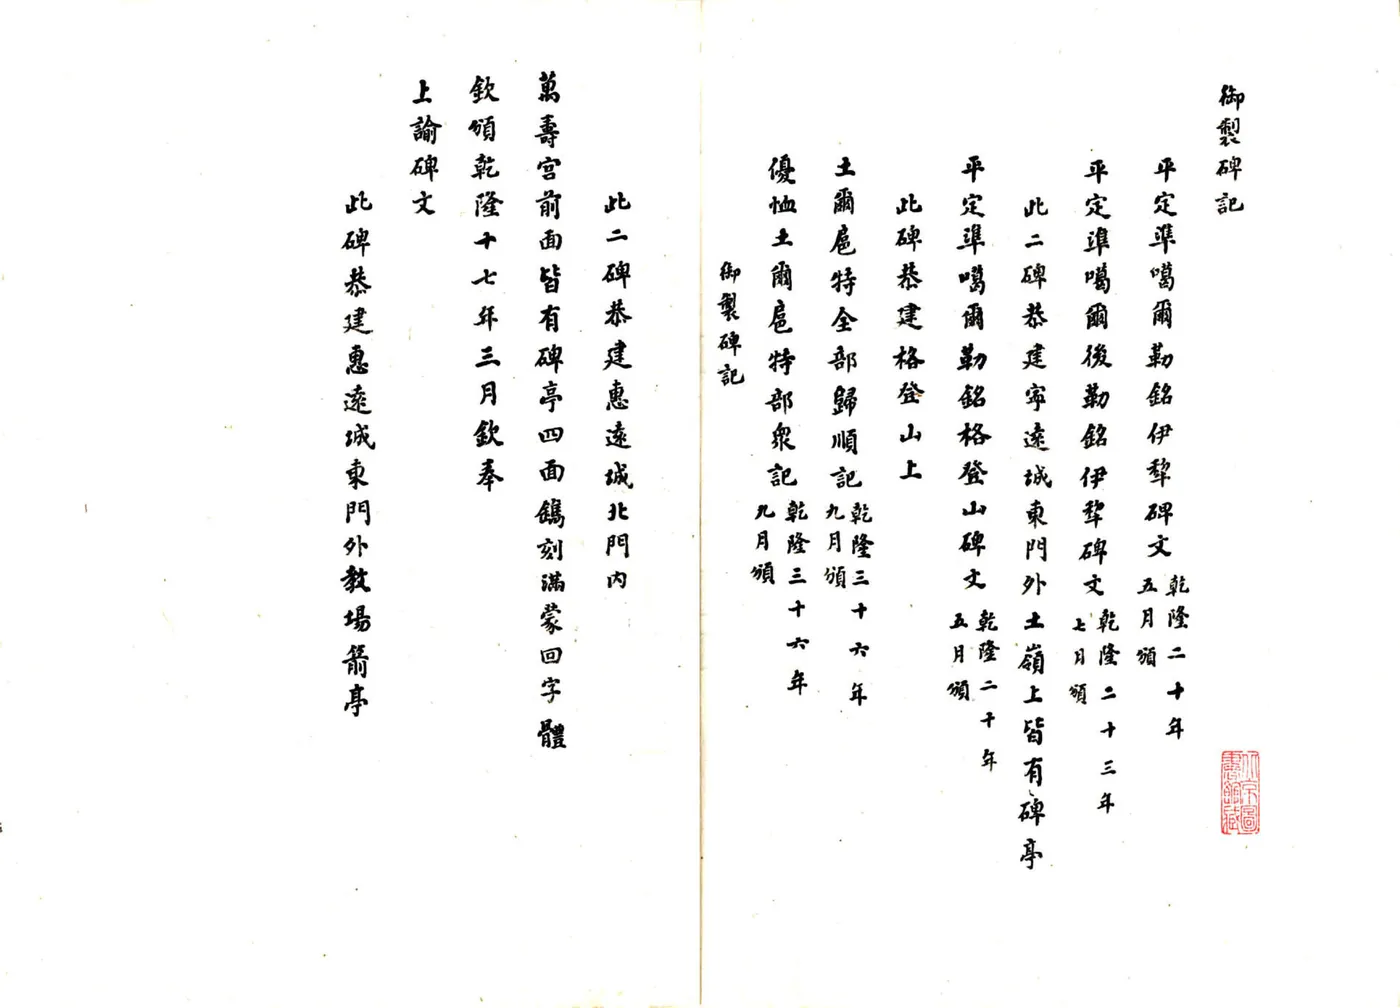 御製碑記
平定準噶爾勒銘伊犂碑文乾隆二十年五月頒
平定準噶爾後勒銘伊犂碑文乾隆二十三年七月頒
此二碑恭建寧遠城東門外土嶺上皆有碑亭
平定準噶爾勒銘格登山碑文乾隆二十年五月頒
此碑恭建格登山上
土爾扈特全部歸順記乾隆三十六年九月頒
優恤土爾扈特部衆記乾隆三十六年九月頒
御製碑記
此二碑恭建惠遠城北門内
萬壽宮前面皆有碑亭四面鐫刻滿蒙回字體
欽頒乾隆十七年三月欽奉
上諭碑文
此碑恭建惠遠城東門外教場箭亭